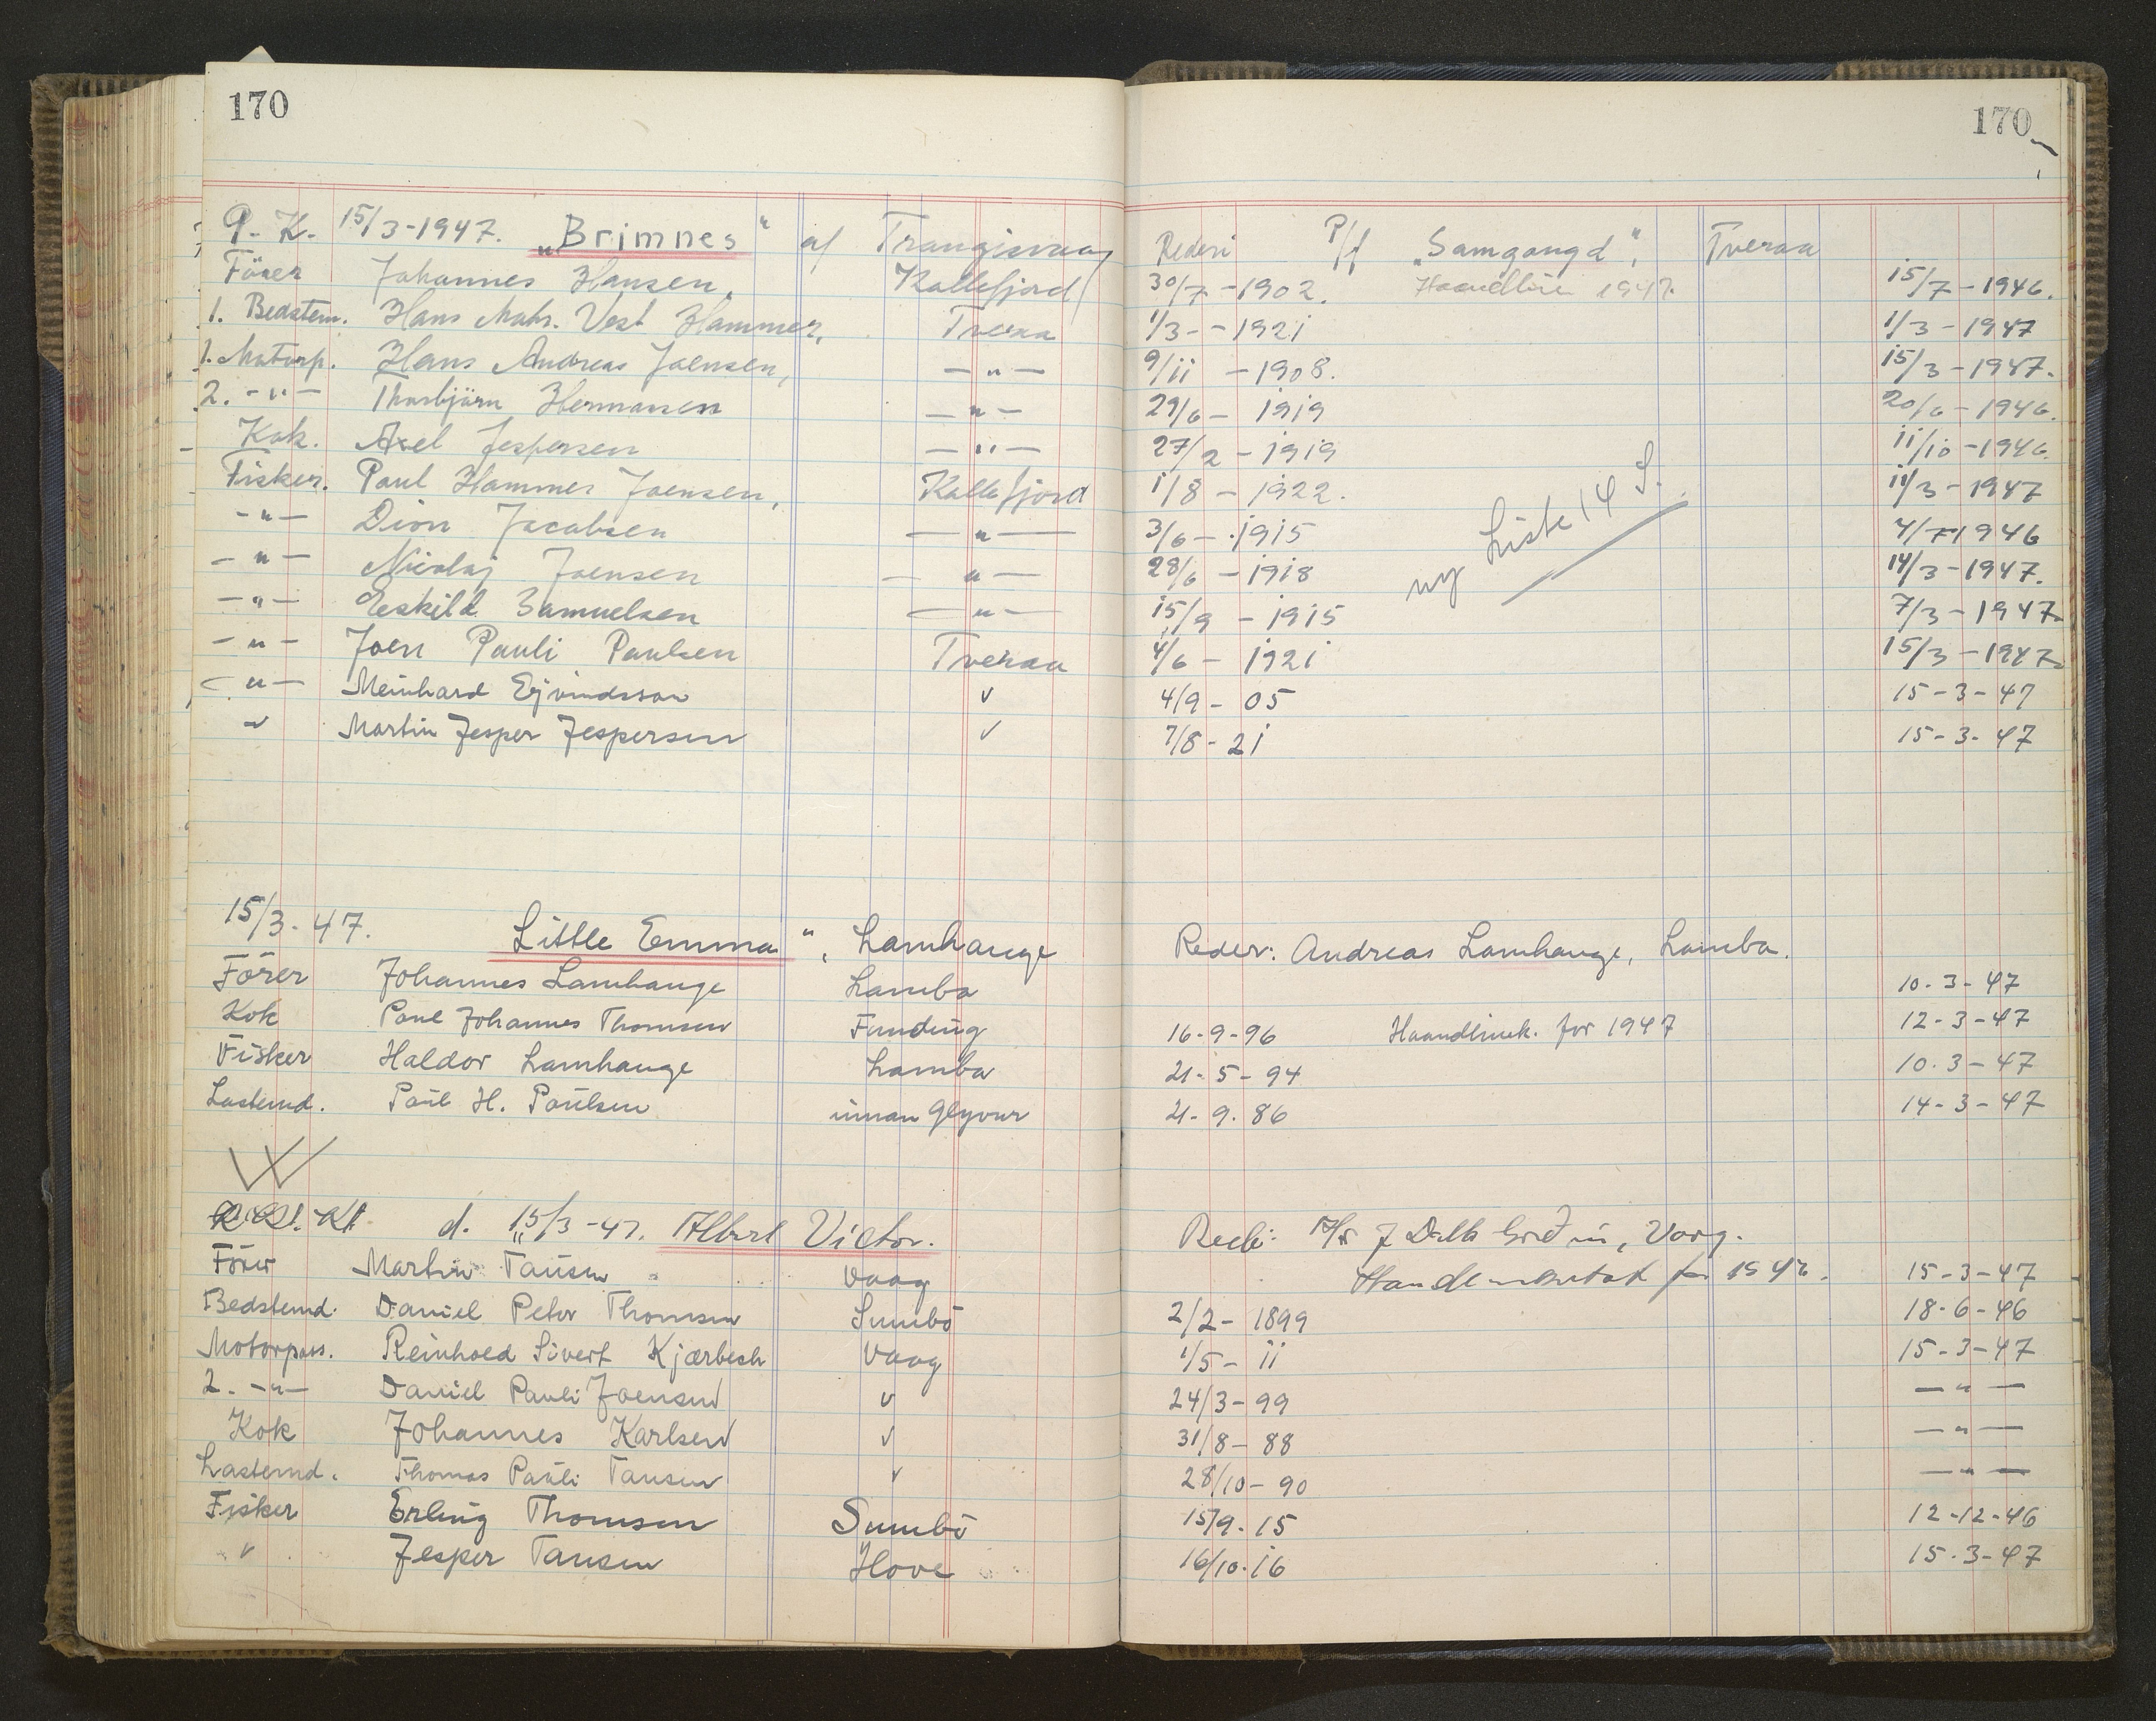 170 170
9. K. 15/3-1947. „Brimnes“ af Trangisvaag Rederi P/f „Samgangd“, Tveraa
Förer Johannes Hansen, Kollefjord 30/7-1902. Haandline 1947. 15/7-1946.
1. Bedstem. Hans Mohr. Vest Hammer, Tveraa 1/3--1921 1/3-1947
1. Motorp. Hans Andreas Joensen, -"- 9/11-1908. 15/3-1947.
2. -"- Thorbjörn Hermansen -"- 29/6-1919 20/6-1946.
Kok. Axel Jespersen -"- 27/2-1919 11/10-1946.
Fisker. Paul Hammer Joensen, Kollefjord 1/8-1922. 11/3-1947
-"- Dion Jacobsen -"- 3/6-1915 ny Liste 14 S. 4/7-1946
-"- Nicolaj Joensen -"- 28/6-1918 14/3-1947.
-"- Eskild Samuelsen -"- 15/9-1915 7/3-1947
-"- Joen Pauli Paulsen Tveraa 4/6-1921 15/3-1947
-"- Meinhard Ejvindsson " 4/9-05 15-3-47
" Martin Jesper Jespersen " 7/8-21 15-3-47
15/3-47. Little Emma“, Lamhauge Reder: Andreas Lamhauge, Lamba.
Förer Johannes Lamhauge Lamba 10-3-47
Kok Poul Johannes Thomsen Funding 16-9-96 Haandsnick. for 1947 12-3-47
Fisker Haldor Lamhauge Lamba 21-5-94 10-3-47
Lastemd. Poul H. Poulsen innan Glyvur 21-9-86 14-3-47
d. 15/3-47. Albert Victor. J Dalb Vaag.
Förer Martin Tausen Vaag for 1947. 15-3-47
Bedstemd. Daniel Peter Thomsen Sumbö 2/2-1899 18-6-46
Motorpass. Reinhoed Sivert Kjærbech Vaag 1/5-11 15-3-47
2. -"- Daniel Pauli Joensen " 24/3-99 -"-
Kok Johannes Karlsen " 31/8-88 -"-
Lastemd. Thomas Pauli Tausen " 28/10-90 -"-
Fisker Erling Thomsen Sumbö 15/9-15 12-12-46
" Jesper Tausen Hove 16/10-16 15-3-47